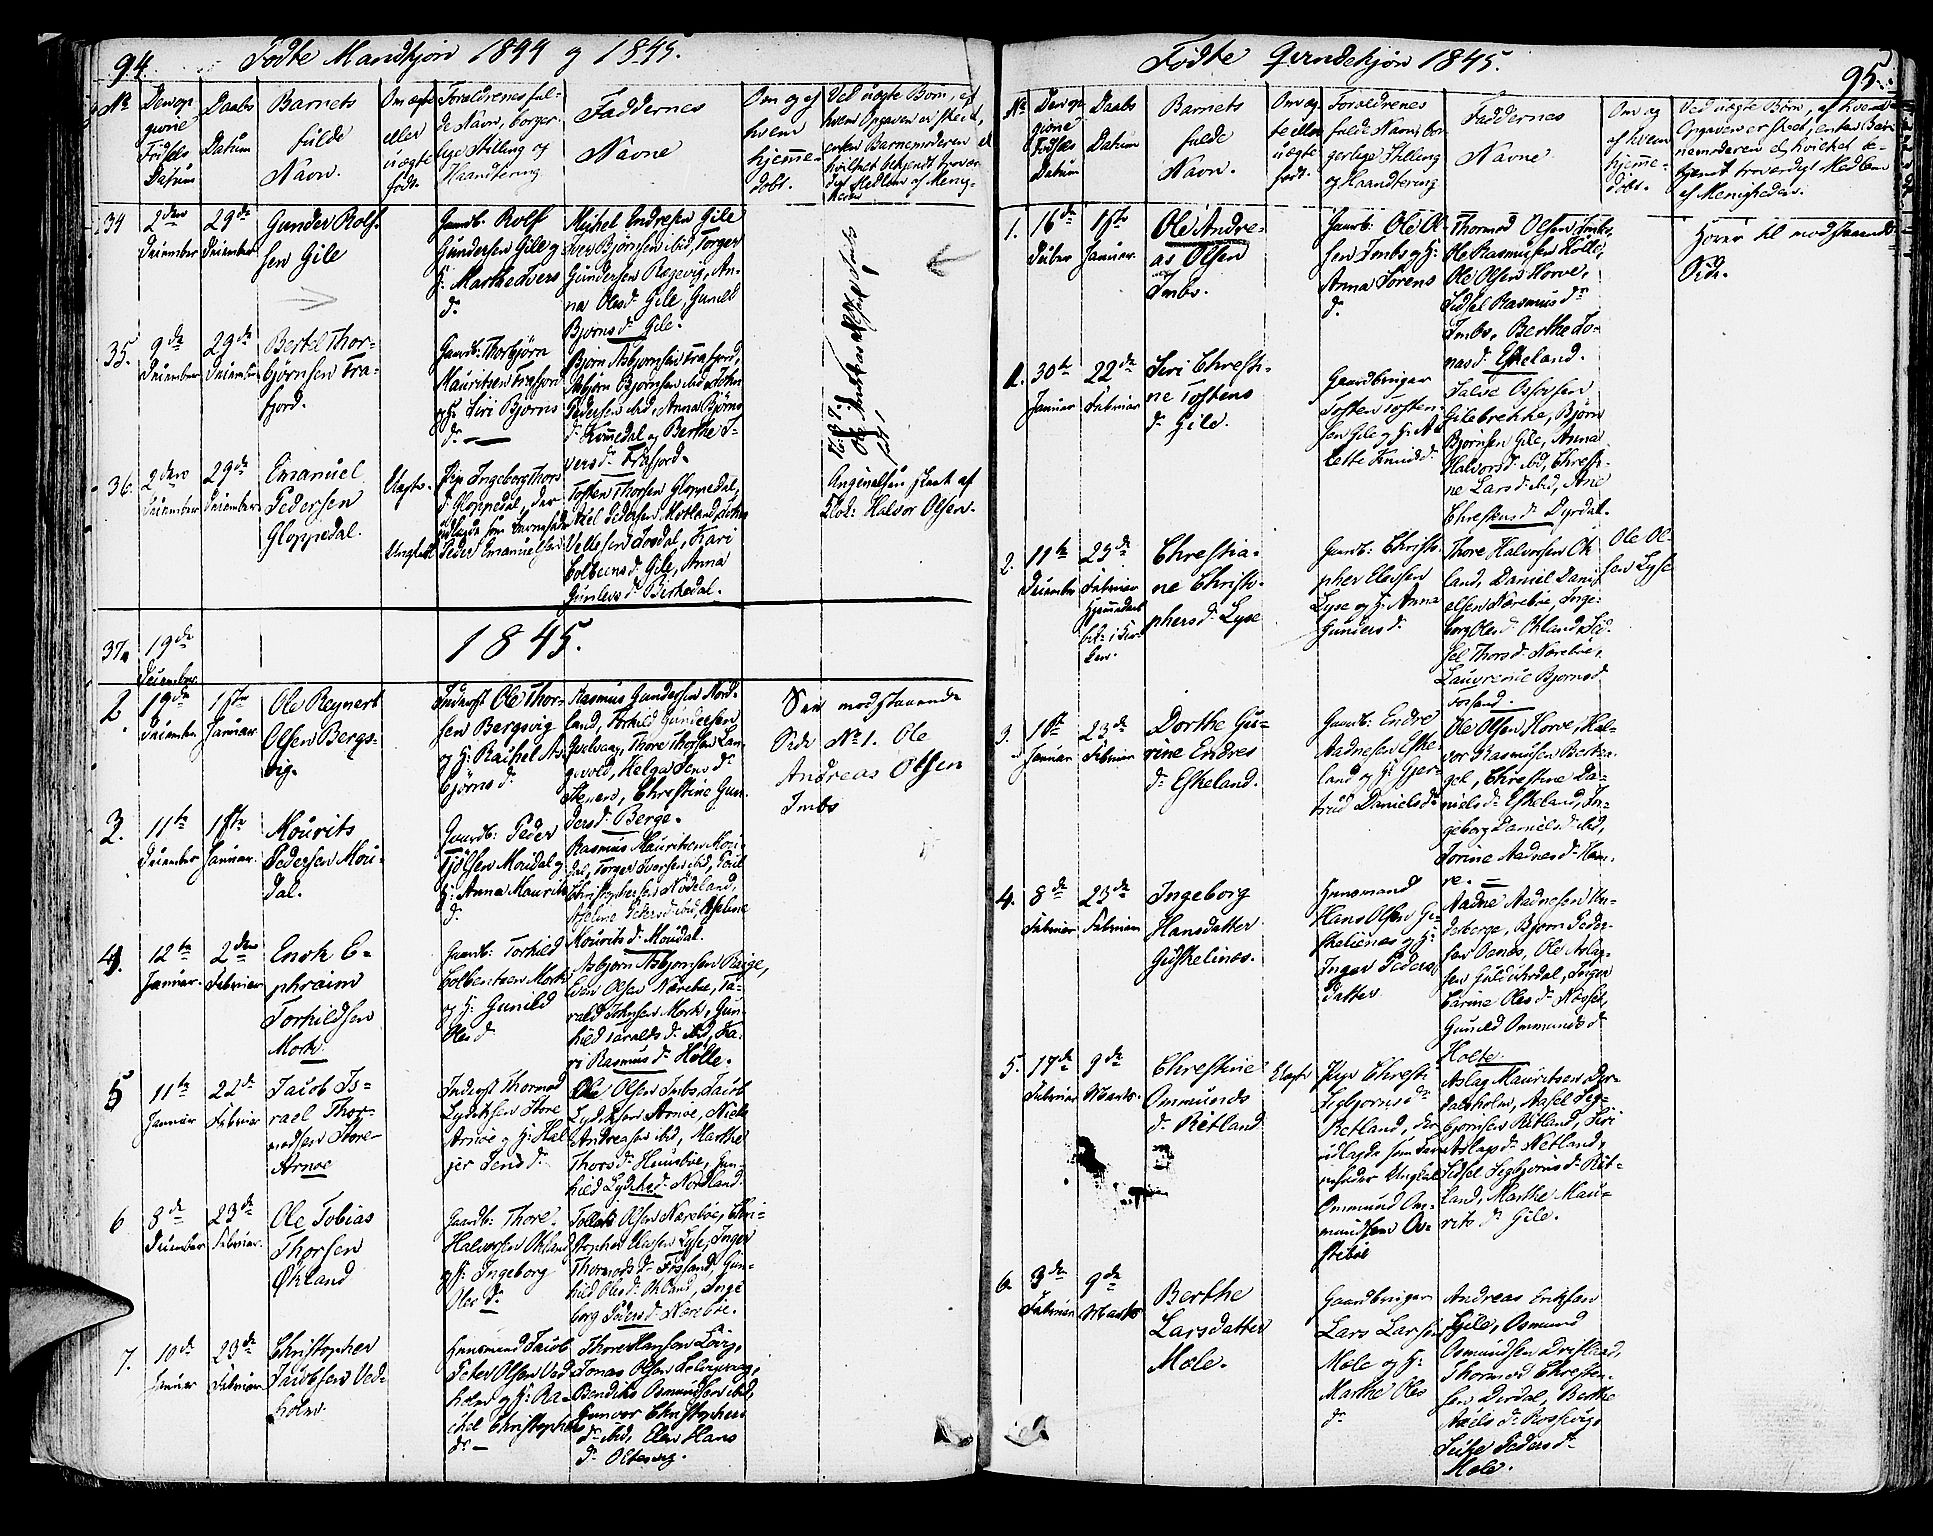 94.
Fødte Mandkjøn 1844 og 1845.
No
Den op
givne
Fødsels
Datum
Daabs
Datum
Barnets
fulde
Navn.
Om ægte
eller
uægte
født.
Forældrenes ful-
de Navn, borger
lige Stilling og
Haandtering
Faddernes
Navne
Om og af
hvem
hjemme-
døbt.
34
2den
December
29de
December
Gunder Rolf-
sen Gile
Gaardb: Rolf
Gundersen Gile og
H: Marthe Ivers
d.
Michel Endresen Gile
Iver Bjørnsen ibid, Torger
Gundersen Ragevig, An-
na Olesd. Gile, Gunild
Bjørnsd. Gile.
35.
9de
December
29de
December
Bertel Thor-
bjørnsen Fra-
fjord.
Gaardb: Thorbjørn
Mauritsen Frafjord
og H: Siri Bjørns
d.
Bjørn Asbjørnsen Frafjord,
Asbjørn Bjørnsen ibid, John
Pedersen ibid, Anna Bjørns
d. Kommedal og Berthe I-
versd. Frafjord.
36.
2den
December
29de
December
Emanuel
Pedersen
Gloppedal.
Uægte.
Pige Ingeborg Thors
d. Gloppedal, der
udlagde som Barnefader
Ungkarl Peder Emanuelsen
Tosten Thorsen Gloppedal,
Axel Pedersen Motland
Kari
Gile, Anna
Gunlevsd. Birkedal.
Angivelsen skeet af
Klok: Halvor Olsen.
37.
19de
December
1845.
2
19de
December
1ste
Januar
Ole Reynert
Olsen Bergs-
vig.
Inderst Ole Thor-
sen Bergsvig
og H: Rachel As-
bjørnsd.
Rasmus Gundersen Nord-
land, Torkild Gundersen
Thore Thorsen Lan-
gevold, Helga Jensd.
Christine Gun-
dersd. Berge.
See modstaaende
Side No 1. Ole
Andreas Olsen
Imbs
3.
11te
December
1ste
Januar.
Mourits
Pedersen Mou-
dal.
Gaardb: Peder
Moudal og
H: Anna Maurits
d.
Rasmus Mauritsen Mou-
dal, Torger Iversen ibid, Poul
Christophersen Nødeland,
Mouritsd. Moudal.
4.
12te
Januar.
2den
Februar
Enok E-
phraim
Torkildsen
Mork.
Gaardb: Torkild
Colbentsen Mork
og H: Gunild
Olesd
Asbjørn Asbjørnsen Rage,
Even Olsen Nærebøe, Ta-
rald Johnsen Mork, Gun-
hild Taraldsd. ibid, Ka-
ri Rasmusd. Hølle.
5
11te
Januar
22de
Februar
Jacob Is-
rael Thor-
modsen Store-
Arnøe
Inderst Thormod
Lydiksen Store
Arnøe og H: Hal-
jer Jensd.
Ole Olsen Imbs, Jacob
Lydiksen Arnøe, Niels
Andreasen ibid, Marthe
Thorsd. Hunsbøe, Gun-
hild Lydiksd. Nordland.
6
8de
December
23de
Februar.
Ole Tobias
Thorsen
Økland
Gaardb: Thore
Halvorsen Økland
og H: Ingeborg
Olesd.
Tollak Olsen Nærebøe, Chri-
stopher Elevsen Lyse, Inger
Thormodsd. Fosland, Gun-
hild Olesd. Økland, Inge
borg Pedersd. Nærebøe.
7.
10de
Januar
23de
Februar
Christopher
Jacobsen Ved-
holm.
Huusmand Jacob
Peter Olsen Ved-
holm og H: Ra-
chel Christophers
d.
Thore Hansen Lövig,
Jonas Olsen Helvigvaag,
Bendiks Osmundsen ibid,
Gunvor Christophers
d. ibid, Elen Hans
d. Oltesvig.
95.
Fødte Qvindekjøn 1845.
No
Den op
givne
Fødsels
Datum
Daabs
Datum
Barnets
fulde
Navn.
Om æg-
te eller
uægte
født.
Forældrenes
fulde Navn, bor-
gerlige Stilling
og Haandtering
Faddernes
Navne
Om og
af hvem
hjemme-
døbt.
Ved uægte Børn, af hvem
Opgaven er skeet, enten Bar-
nemoderen eller hvilket be-
kjendt troværdigt Medlem
af Menigheden.
1.
16de
Decbr
1ste
Januar.
Ole Andre-
as Olsen
Imbs.
Gaardb: Ole Ol-
sen Imbs og H:
Anna Sørens
d.
Thormod Olsen Imbs,
Ole Rasmussen Hølle,
Ole Olsen Horve,
Sidsel Rasmusd.
Imbs, Berthe Jo-
nasd. Eskeland.
Hører til modstaaende
Side.
1.
30te
Januar
22de
Februar
Siri Christi-
ne Tostens
d. Gile.
Gaardbruger
Tosten Tosten-
sen Gile og H:
Lette Knudsd.
Gilebrekke, Bjørn
Bjørnsen Gile, Anna
Halvorsd. ibid, Christi-
ne Larsd. ibid, Ane
Christensd. Dyrdal.
2.
11te
December
23de
Februar
Hjemmedøbt
Christia-
ne Christo-
phersd. Lyse
Gaardb: Christo-
pher Elevsen
Lyse og H: Anna
Gundersd.
Thore Halvorsen Øk
land, Daniel Dani-
elsen Nærebøe, Inge-
borg Olesd. Økland, Sid-
sel Thorsd. Nærebøe,
Laurense Bjørnsd
Fosland.
Ole Ol-
sen Lyse
3.
1ste
Januar
23de
Februar
Dorthe Gu-
rine Endres
d. Eskeland.
Gaardb: Endre
Aadnesen Eske-
land og H: Gjer-
trud Danielsd.
Ole Olsen Horve, Hal-
vor Rasmussen Berke-
, Christine Da-
nielsd. Eskeland, In-
geborg Danielsd. ibid,
Torine Aadnesd. Ham-
re.
4.
8de
Februar
23de
Februar
Ingeborg
Hansdatter
Gidskelines.
Huusmand
Hans Olsen Gi-
skelienes og H:
Inger Peders
datter
Aadne Aadnesen Un-
desberge, Bjørn Peder-
sen Oanes, Ole Aslag-
sen Guldurdal, Inger
Carine Olesd. Næsset,
Gunild Ommundsd
Holte.
5.
17de
Februar
9de
Marts.
Christine
Ommunds
d. Ritland
Uægte
Pige Christi
Sigbjørnsd.
Retland, der
udlagde som Bar-
nefader Ungkarl
Ommund Om-
mundsen Øv-
stebøe
Aslag Mauritsen Dyr-
dalsholm, Aasel Sig-
bjørnsen Ritland, Siri
Aslagsd. Netland,
Sidsel Sigbjørnsd. Rit-
land, Marthe Mau-
ritsd. Gile.
6.
3de
Februar
9de
Marts
Berthe
Larsdatter
Mæle.
Gaardbruger
Lars Larsen
Mæle og H:
Marthe Oles
d.
Andreas Eriksen
Gjile, Osmund
Osmundsen Dreslaad,
Thormod Christen-
sen Dirdal, Berthe
Axelsd. Rossavig,
Pedersd.
Mæle.